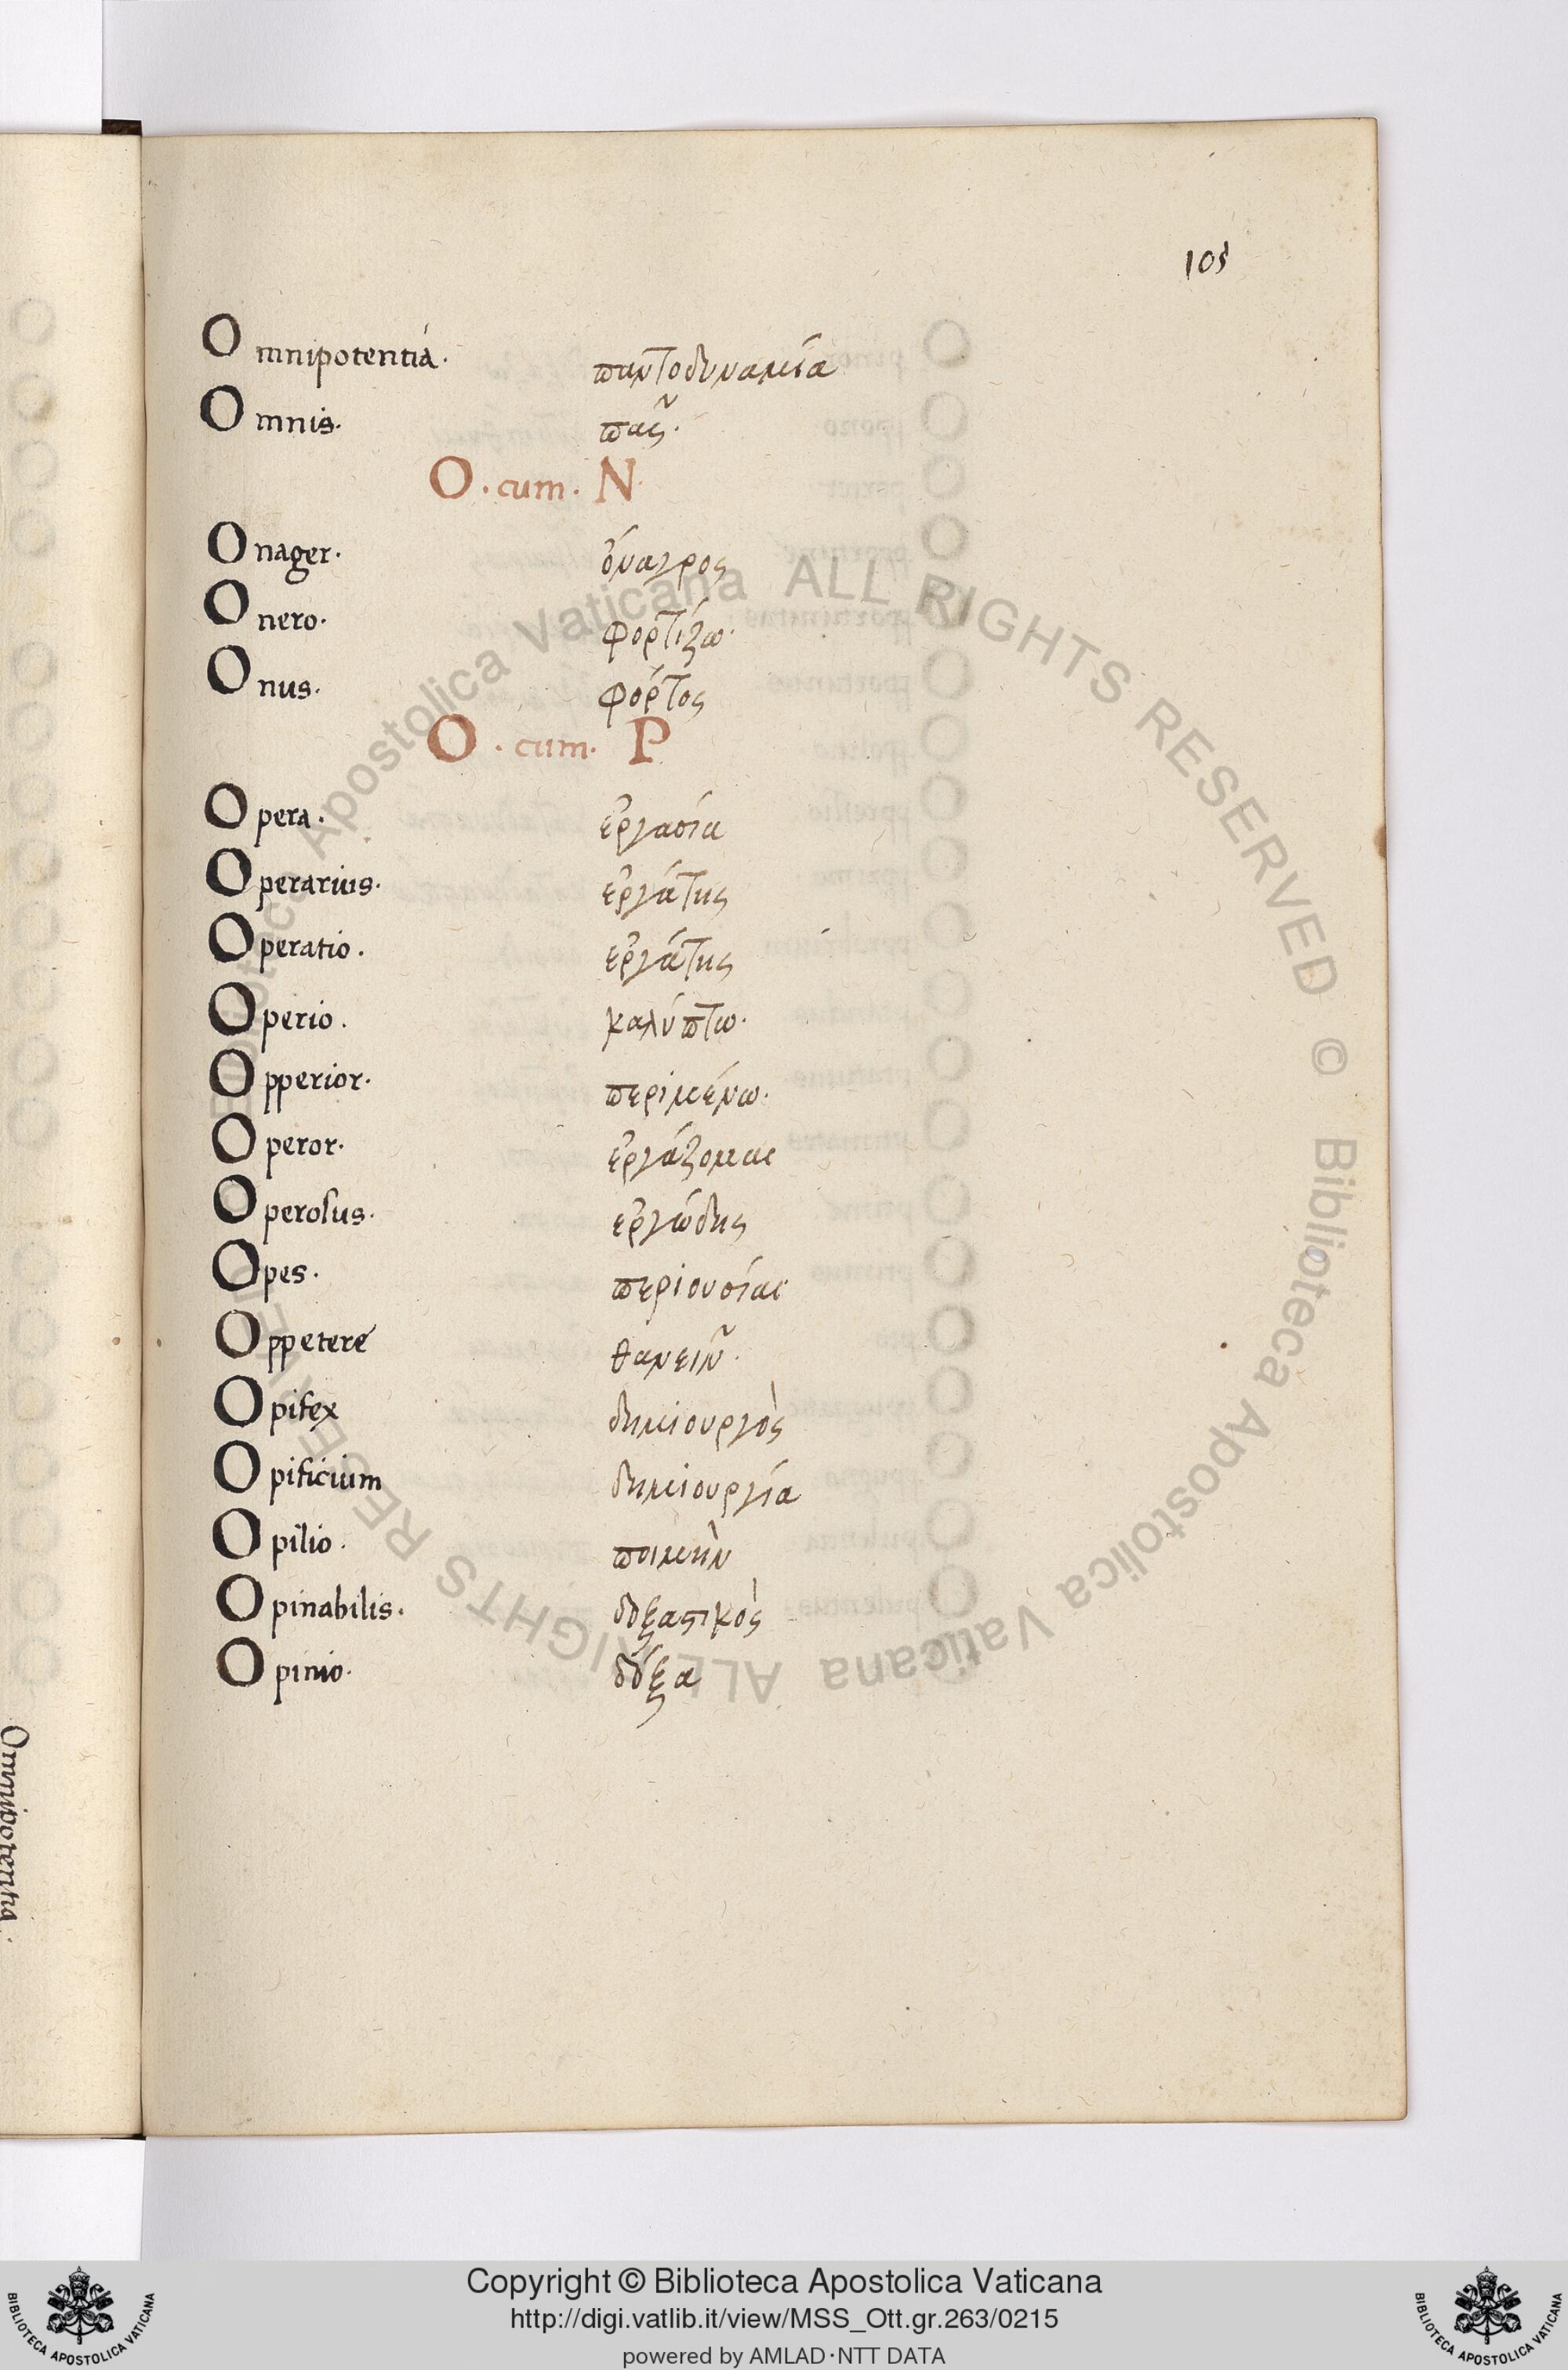 105
Omnipotentia. παντοδυναμία
Omnis. πᾶς.
O. cum. N.
Onager. ὄναγρος
Onero. φορτίζω.
Onus. φόρτος
O. cum. P
Opera. ἐργασία
Operarius. ἐργάτης
Operatio. ἐργάτης
Operio. καλύπτω.
Opperior. περιμένω.
Operor. ἐργάζομαι
Operosus. ἐργώδης
Opes. περιουσίαι
Oppetere θανεῖν.
Opifex δημιουργὸς
Opificium δημιουργία
Opilio. ποιμὴν
Opinabilis. δοξαστικὸς
Opinio. δόξα
Omnipotentia.
Apostolica Vaticana ALL RIGHTS RESERVED © Biblioteca Apostolica Vaticana ALL RIGHTS RESERVED
Copyright © Biblioteca Apostolica Vaticana
http://digi.vatlib.it/view/MSS_Ott.gr.263/0215
powered by AMLAD·NTT DATA
BIBLIOTECA APOSTOLICA VATICANA
BIBLIOTECA APOSTOLICA VATICANA